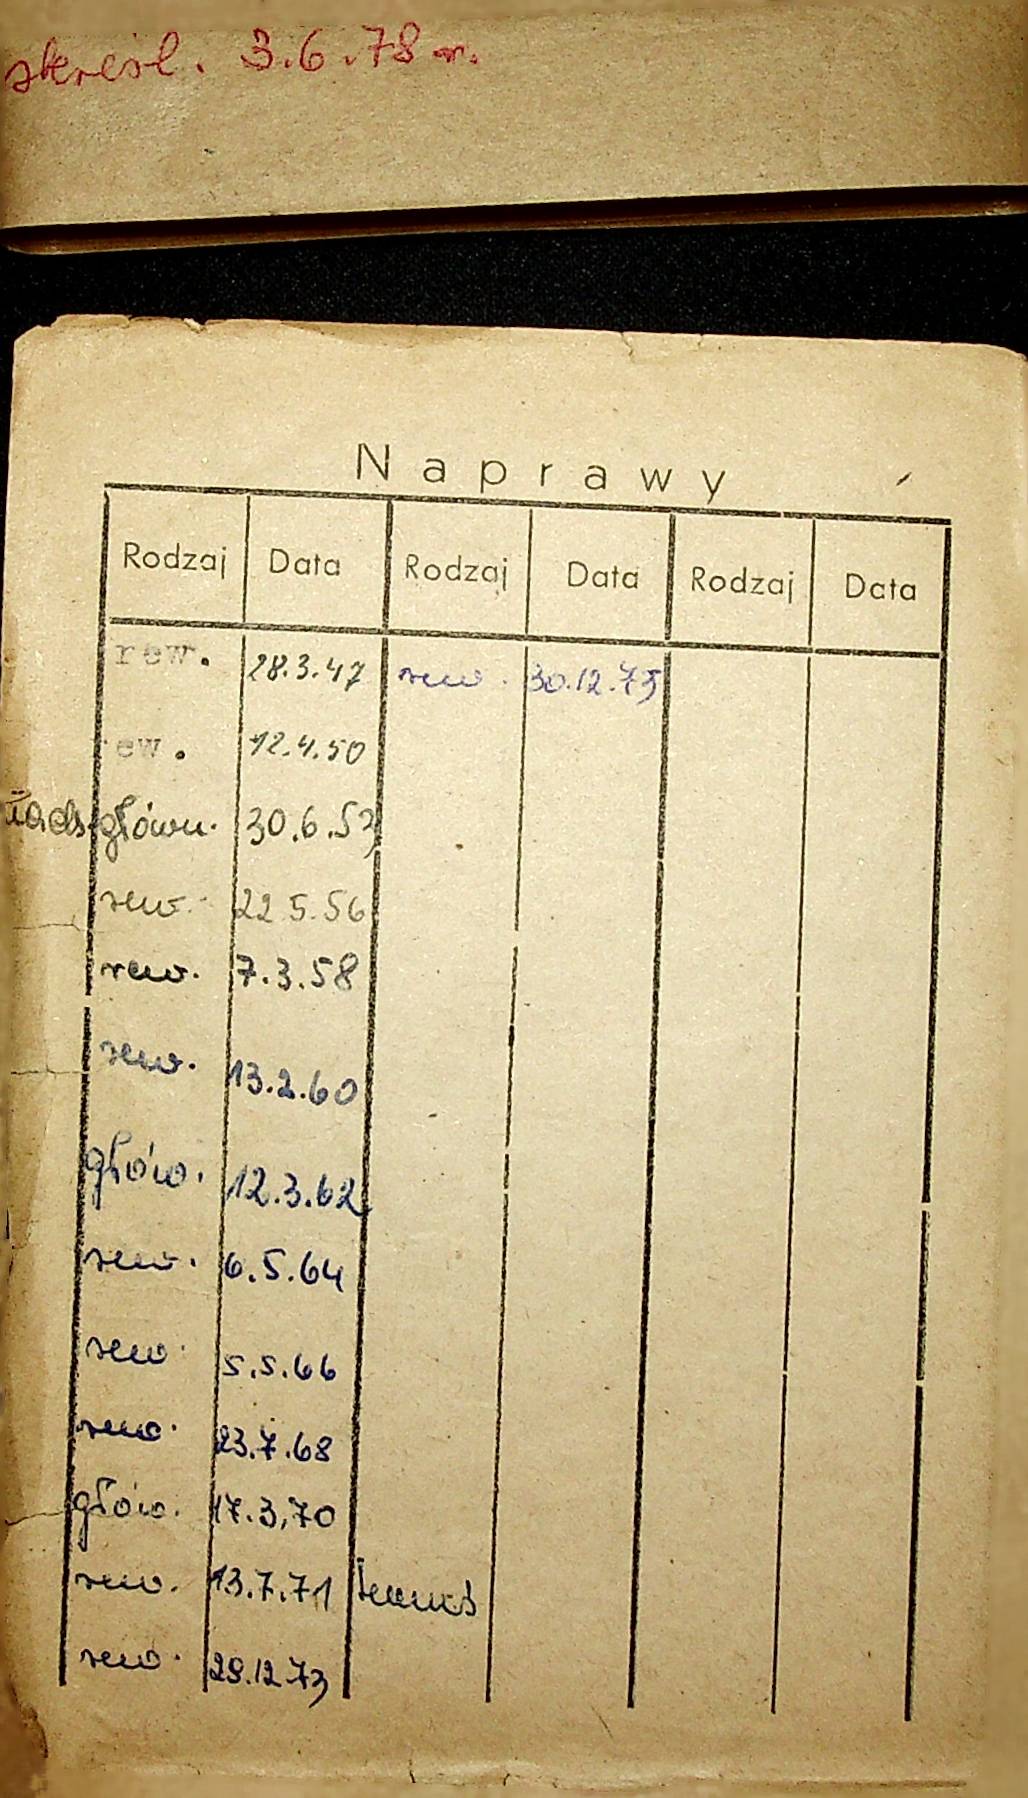 skreśl. 3.6.78 r.
Naprawy
Rodzaj Data Rodzaj Data Rodzaj Data
rew. 28.3.47 rew. 30.12.75
ew. 12.4.50
główn. 30.6.53
rew. 22.5.56
rew. 7.3.58
rew. 13.2.60
głów. 12.3.62
rew. 6.5.64
rew. 5.5.66
rew. 23.7.68
głów. 17.3.70
rew. 13.7.71
rew. 28.12.73